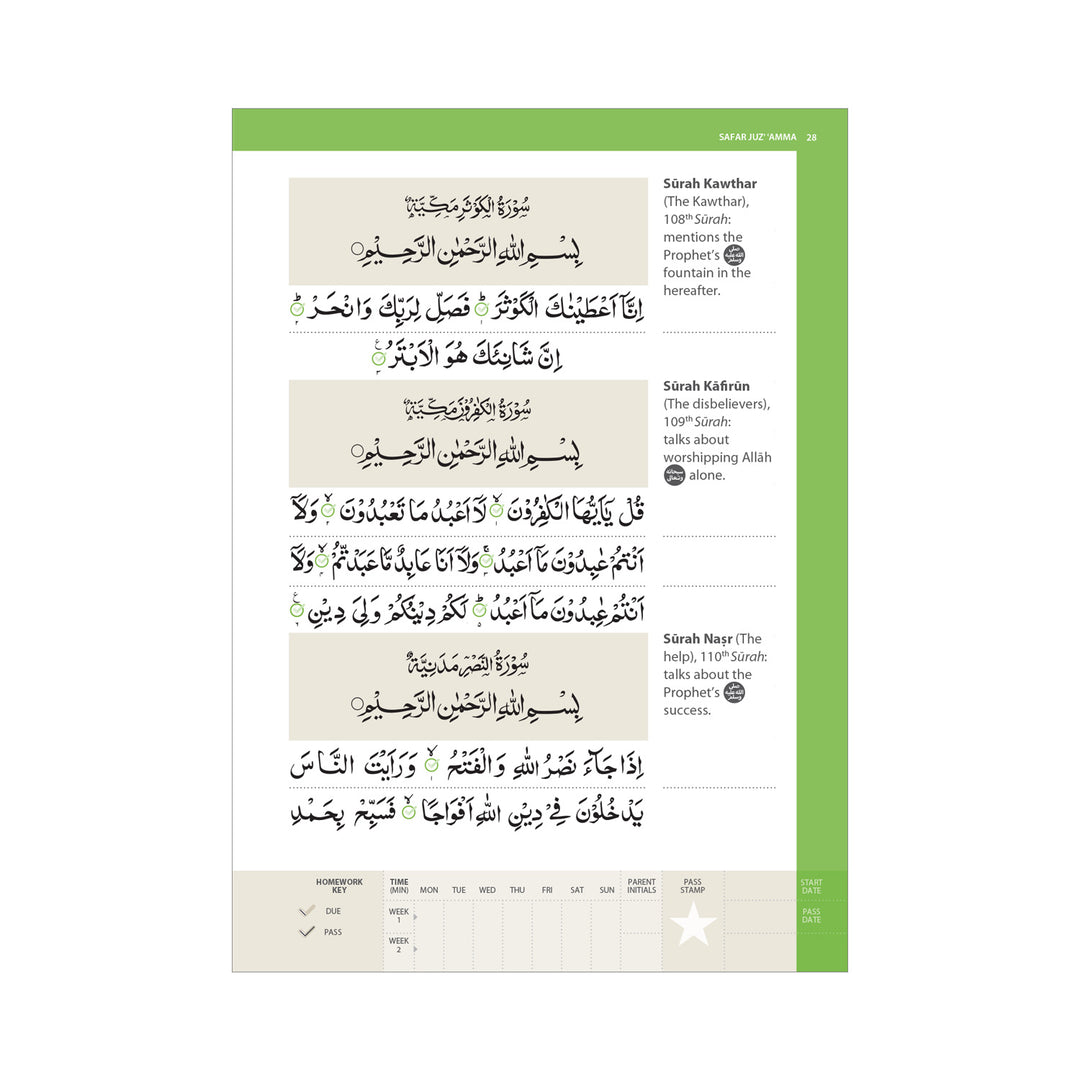 SAFAR JUZ' 'AMMA 28
سُوْرَةُ الْكَوْثَرِ مَكِّيَّةٌ
بِسْمِ اللهِ الرَّحْمٰنِ الرَّحِيْمِ
اِنَّاۤ اَعْطَيْنٰكَ الْكَوْثَرَ ؕ فَصَلِّ لِرَبِّكَ وَانْحَرْ ؕ
اِنَّ شَانِئَكَ هُوَ الْاَبْتَرُ
Sūrah Kawthar
(The Kawthar),
108th Sūrah:
mentions the
Prophet’s ﷺ
fountain in the
hereafter.
سُوْرَةُ الْكٰفِرُوْنَ مَكِّيَّةٌ
بِسْمِ اللهِ الرَّحْمٰنِ الرَّحِيْمِ
قُلْ يٰۤاَيُّهَا الْكٰفِرُوْنَ ۙ لَاۤ اَعْبُدُ مَا تَعْبُدُوْنَ ۙ وَلَاۤ
اَنْتُمْ عٰبِدُوْنَ مَاۤ اَعْبُدُ ۚ وَلَاۤ اَنَا عَابِدٌ مَّا عَبَدْتُّمْ ۙ وَلَاۤ
اَنْتُمْ عٰبِدُوْنَ مَاۤ اَعْبُدُ ؕ لَكُمْ دِيْنُكُمْ وَلِيَ دِيْنِ
Sūrah Kāfirūn
(The disbelievers),
109th Sūrah:
talks about
worshipping Allāh
سبحانه وتعالى alone.
سُوْرَةُ النَّصْرِ مَدَنِيَّةٌ
بِسْمِ اللهِ الرَّحْمٰنِ الرَّحِيْمِ
اِذَا جَآءَ نَصْرُ اللهِ وَالْفَتْحُ ۙ وَرَاَيْتَ النَّاسَ
يَدْخُلُوْنَ فِيْ دِيْنِ اللهِ اَفْوَاجًا ۙ فَسَبِّحْ بِحَمْدِ
Sūrah Naṣr (The
help), 110th Sūrah:
talks about the
Prophet’s ﷺ
success.
HOMEWORK
KEY
DUE
PASS
TIME
(MIN) MON TUE WED THU FRI SAT SUN
WEEK
1
WEEK
2
PARENT
INITIALS
PASS
STAMP
START
DATE
PASS
DATE